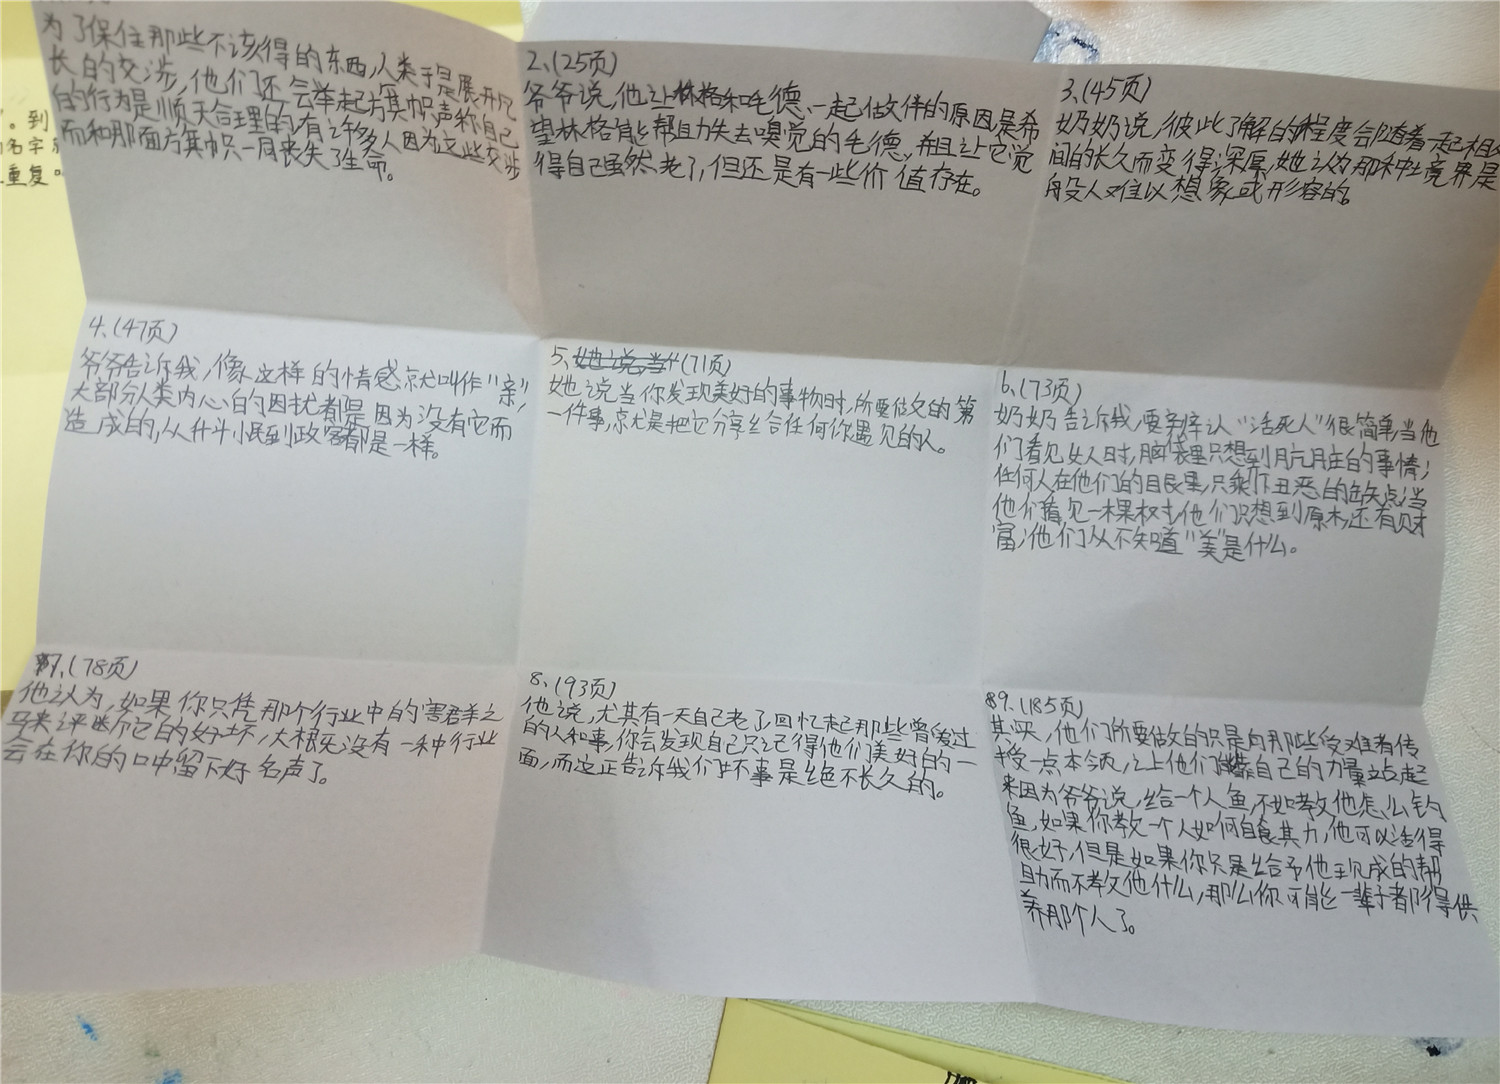 到
名字
重复。
为了保住那些不该得的东西,人类于是展开冗
长的交涉,他们还会举起旗帜声称自己
的行为是顺天合理的,有许多人因为这些交涉
而和那面旗帜一同丧失了生命。
2、(25页)
爷爷说,他让林格和毛德、一起做伴的原因是希
望林格能帮助失去嗅觉的毛德,并且让它觉
得自己虽然老了,但还是有一些价值存在。
3、(45页)
奶奶说,彼此了解的程度会随着一起相处
间的长久而变得深厚,她认为那种境界是
般人难以想象或形容的。
4、(47页)
爷爷告诉我,像这样的情感就叫作“亲”,
大部分人类内心的困扰都是因为没有它而
造成的,从升斗小民到政客都是一样。
5、(71页)
她说当你发现美好的事物时,所要做的第
一件事,就是把它分享给任何你遇见的人。
6、(73页)
奶奶告诉我,要辨认“活死人”很简单,当他
们看见女人时,脑袋里只想到肮脏的事情;
任何人在他们的目艮里,只剩下丑恶的缺点;当
他们看见一棵树,他们只想到原木,还有财
富;他们从不知道“美”是什么。
7、(78页)
他认为,如果你只凭那个行业中的害群之
马来评断它的好坏,大概没有一种行业
会在你的口中留下好名声了。
8、(93页)
他说,尤其有一天自己老了,回忆起那些曾爱过
的人和事,你会发现自己只记得他们美好的一
面,而这正告诉我们坏事是绝不长久的。
9、(185页)
其实,他们所要做的只是向那些受难者传
授一点本领,让他们能靠自己的力量站起
来因为爷爷说,给一个人鱼,不如教他怎么钓
鱼,如果你教一个人如何自食其力,他可以活得
很好,但是如果你只是给予他现成的帮
助而不教他什么,那么你可能一辈子都得供
养那个人了。